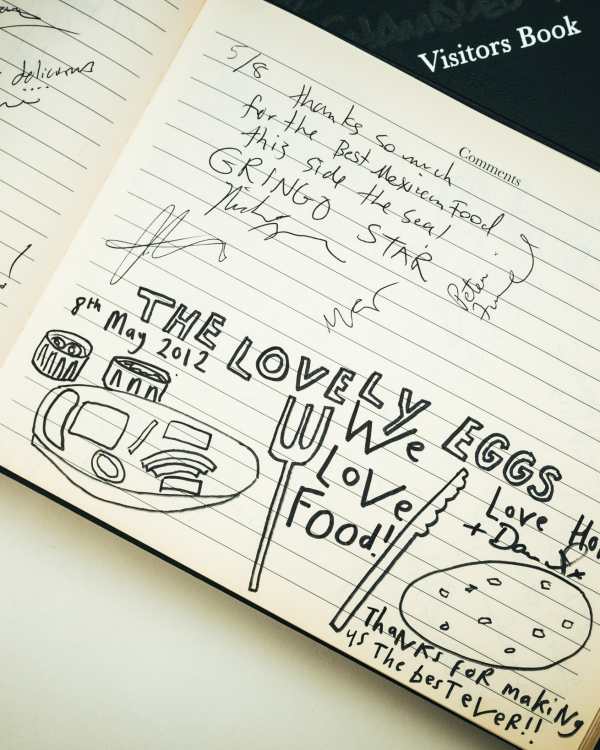 Visitors Book
Comments
delicious
5/8 thanks so much
for the Best Mexican Food
this side the sea!
GRINGO STAR
Peter
THE LOVELY EGGS
8th
May 2012
We
Love
Food!!
Love Hol
+ Dav
THANKS FOR making
us The besT eVeR!!